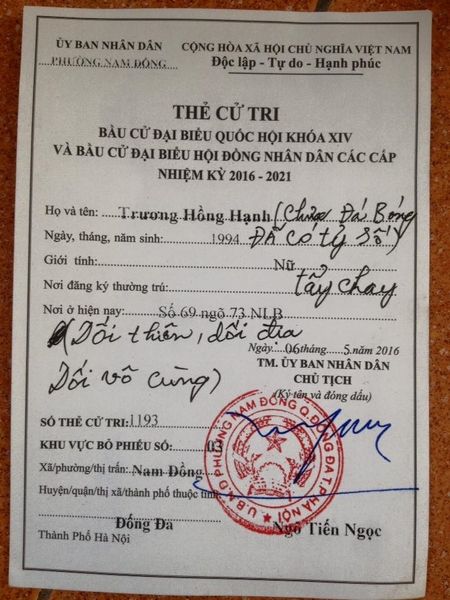 ỦY BAN NHÂN DÂN
PHƯỜNG NAM ĐỒNG
CỘNG HÒA XÃ HỘI CHỦ NGHĨA VIỆT NAM
Độc lập - Tự do - Hạnh phúc
THẺ CỬ TRI
BẦU CỬ ĐẠI BIỂU QUỐC HỘI KHÓA XIV
VÀ BẦU CỬ ĐẠI BIỂU HỘI ĐỒNG NHÂN DÂN CÁC CẤP
NHIỆM KỲ 2016 - 2021
Họ và tên: Trương Hồng Hạnh (Chưa Đá Bóng
Ngày, tháng, năm sinh: 1994 ĐÃ có tỷ số)
Giới tính: Nữ
tẩy chay
Nơi đăng ký thường trú:
Nơi ở hiện nay: Số 69 ngõ 73 NLB
(Dối thiên, dối địa
Ngày 06 tháng 5 năm 2016
Dối vô cùng)
TM. ỦY BAN NHÂN DÂN
CHỦ TỊCH
(Ký tên và đóng dấu)
SỐ THẺ CỬ TRI: 1193
KHU VỰC BỎ PHIẾU SỐ: 03
Xã/phường/thị trấn: Nam Đồng
Huyện/quận/thị xã/thành phố thuộc tỉnh:
Đống Đa
Thành Phố Hà Nội
Ngô Tiến Ngọc
U.B.N.D PHƯỜNG NAM ĐỒNG Q.ĐỐNG ĐA T.P HÀ NỘI